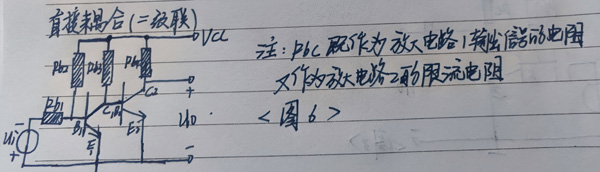 直接耦合(二放联)
VCC
Rb2
Rb1
B1
E1
C1B2
E2
C2
+
U0
-
Ui
+
注：Rbc既作为放大电路1输出信号的电阻
又作为放大电路2的限流电阻
<图6>